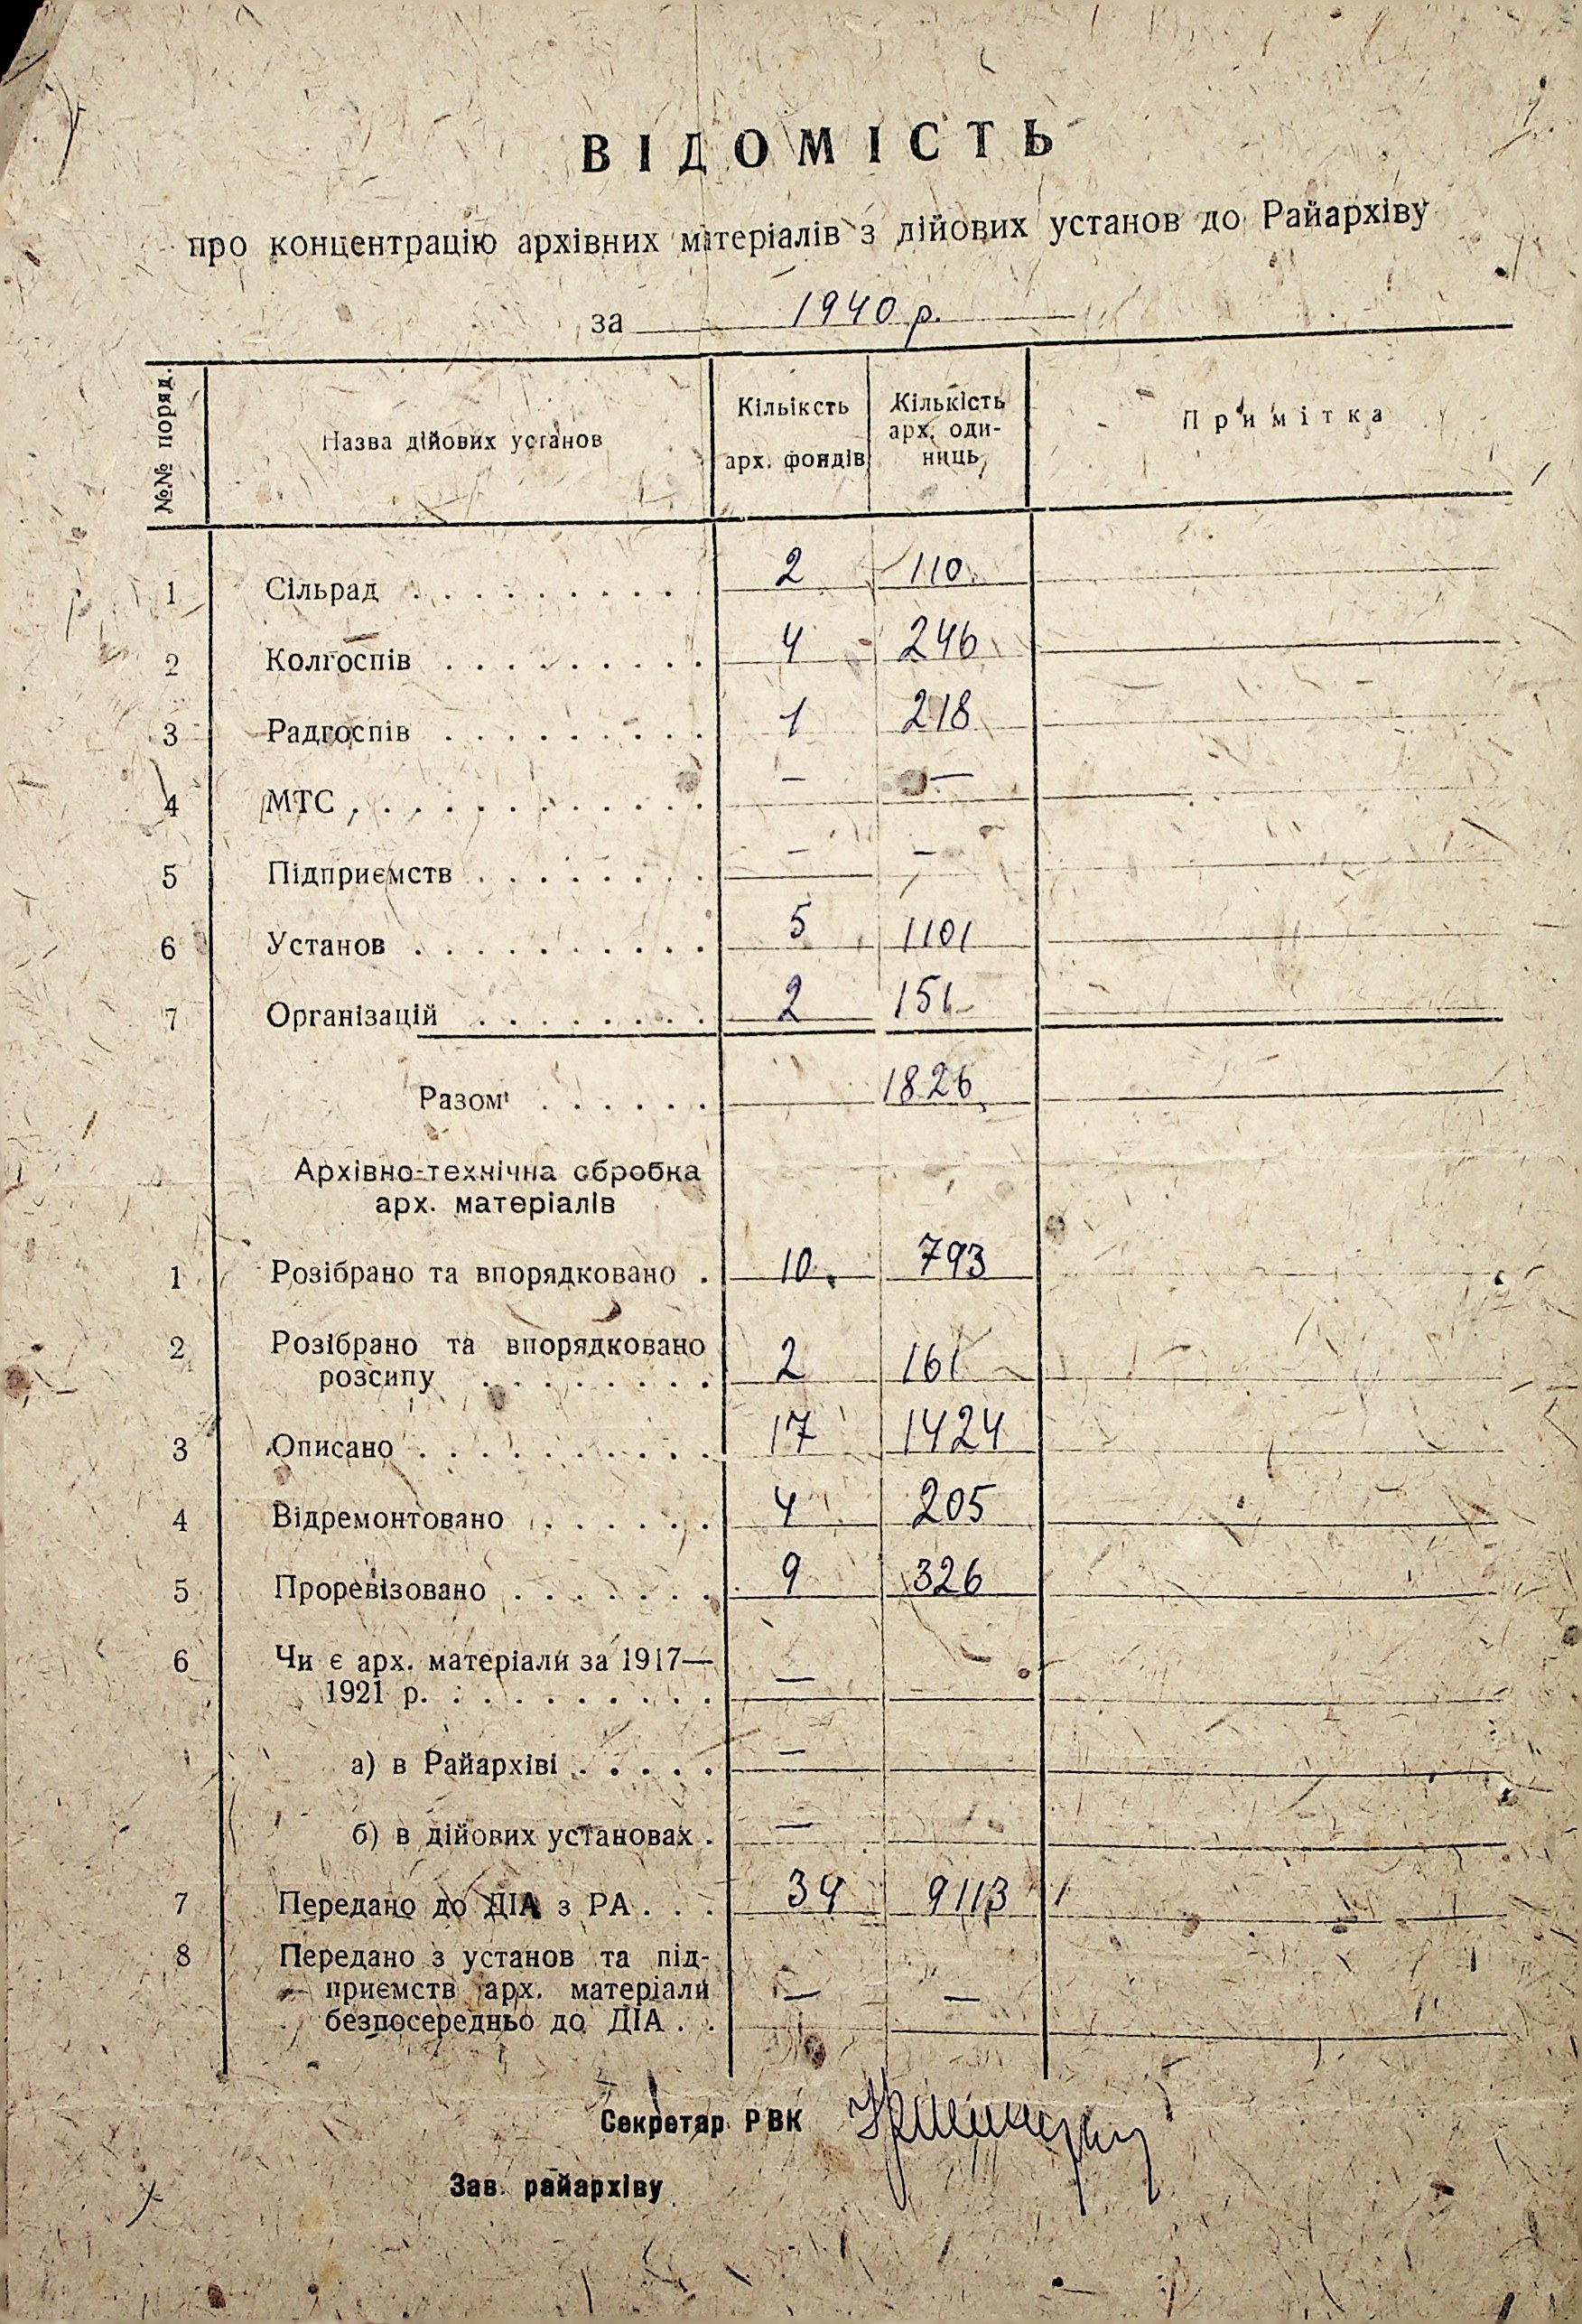 ВІДОМІСТЬ
про концентрацію архівних матеріалів з дійових установ до Райархіву
за 1940 р.
№№ поряд. Назва дійових установ Кільіксть арх. фондів Кількість арх. оди-ниць Примітка
1 Сільрад . . . . . . . . . . 2 110
2 Колгоспів . . . . . . . . . 4 246
3 Радгоспів . . . . . . . . . 1 218
4 МТС . . . . . . . . . . . . — —
5 Підприємств . . . . . . . . — —
6 Установ . . . . . . . . . . 5 1101
7 Організацій . . . . . . . . 2 151
Разом . . . . . . 1826
Архівно-технічна обробка
арх. матеріалів
1 Розібрано та впорядковано . 10 793
2 Розібрано та впорядковано
розсипу . . . . . . . . 2 161
3 Описано . . . . . . . . . . 17 1424
4 Відремонтовано . . . . . . 4 205
5 Проревізовано . . . . . . . 9 326
6 Чи є арх. матеріали за 1917—
1921 р. . . . . . . . . . . —
а) в Райархіві . . . . . —
б) в дійових установах . —
7 Передано до ДІА з РА . . . 34 9113
8 Передано з установ та під-
приємств арх. матеріали
безпосередньо до ДІА . . — —
Секретар РВК
Зав. райархіву